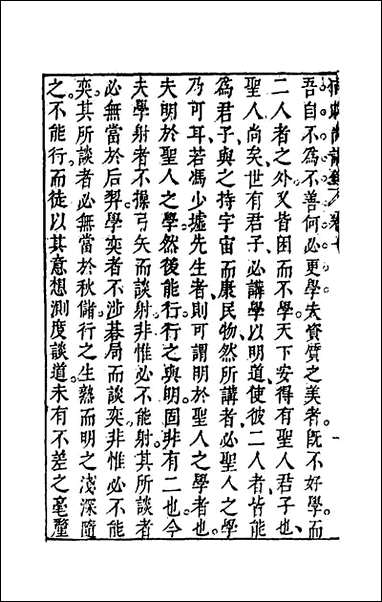 吾自不為不善何必更學。夫資質之美者。既不好學。而
二人者之外。又皆困而不學。天下安得有聖人君子也、
聖人尚矣。世有君子、必講學以明道、使彼二人者、皆能
為君子、與之持宇宙而康民物、然所講者、必聖人之學
乃可耳、若馮少墟先生者、則可謂明於聖人之學者也。
夫明於聖人之學。然後能行。行之與明。固非有二也。今
夫學射者不操弓矢而談射。非惟必不能射。其所談者
必無當於后羿。學奕者不涉碁局而談奕。非惟必不能
奕。其所談者必無當於秋儲。行之生熟而明之淺深隨
之。不能行而徒以其意想測度談道。未有不差之毫釐